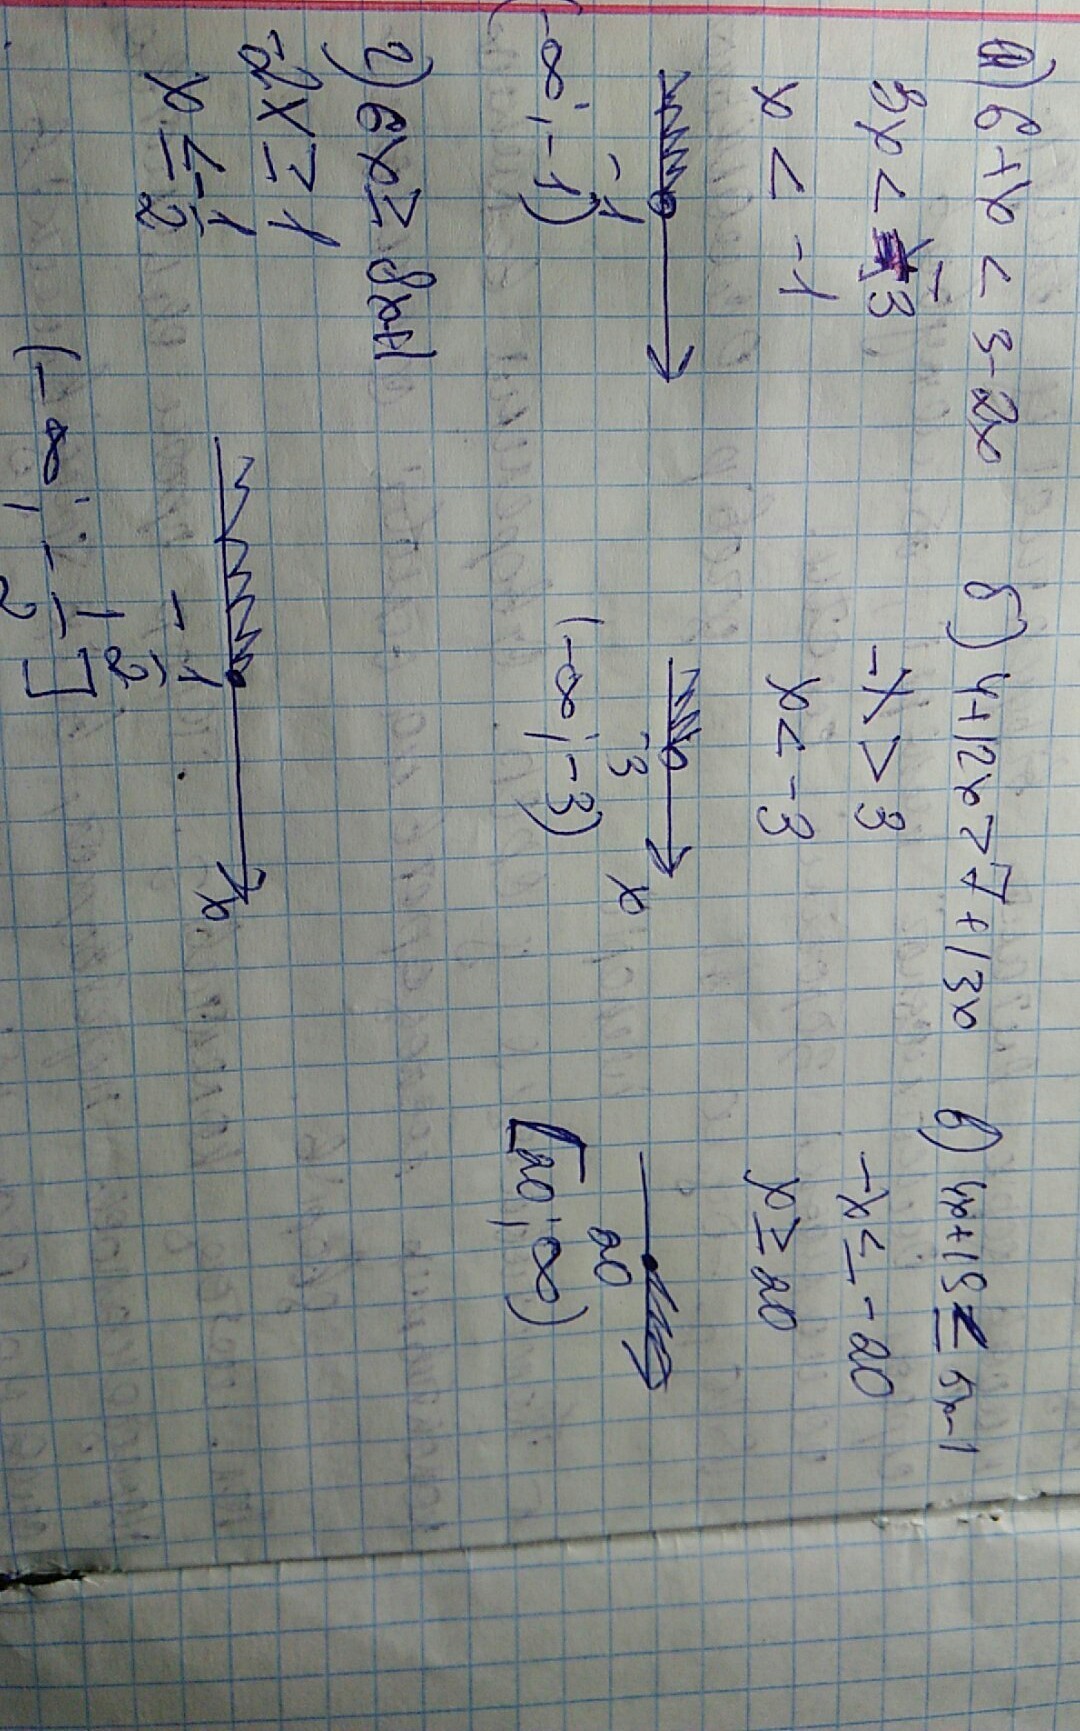 а) 6+x < 3-2x
3x < -3
x < -1
-1
(-∞; -1)
б) 4+12x > 7+13x
-x > 3
x < -3
-3 x
(-∞; -3)
в) 4x+19 ≤ 5x-1
-x ≤ -20
x ≥ 20
20
[20; ∞)
г) 6x ≥ 8x+1
-2x ≥ 1
x ≤ -1/2
-1/2 x
(-∞; -1/2]